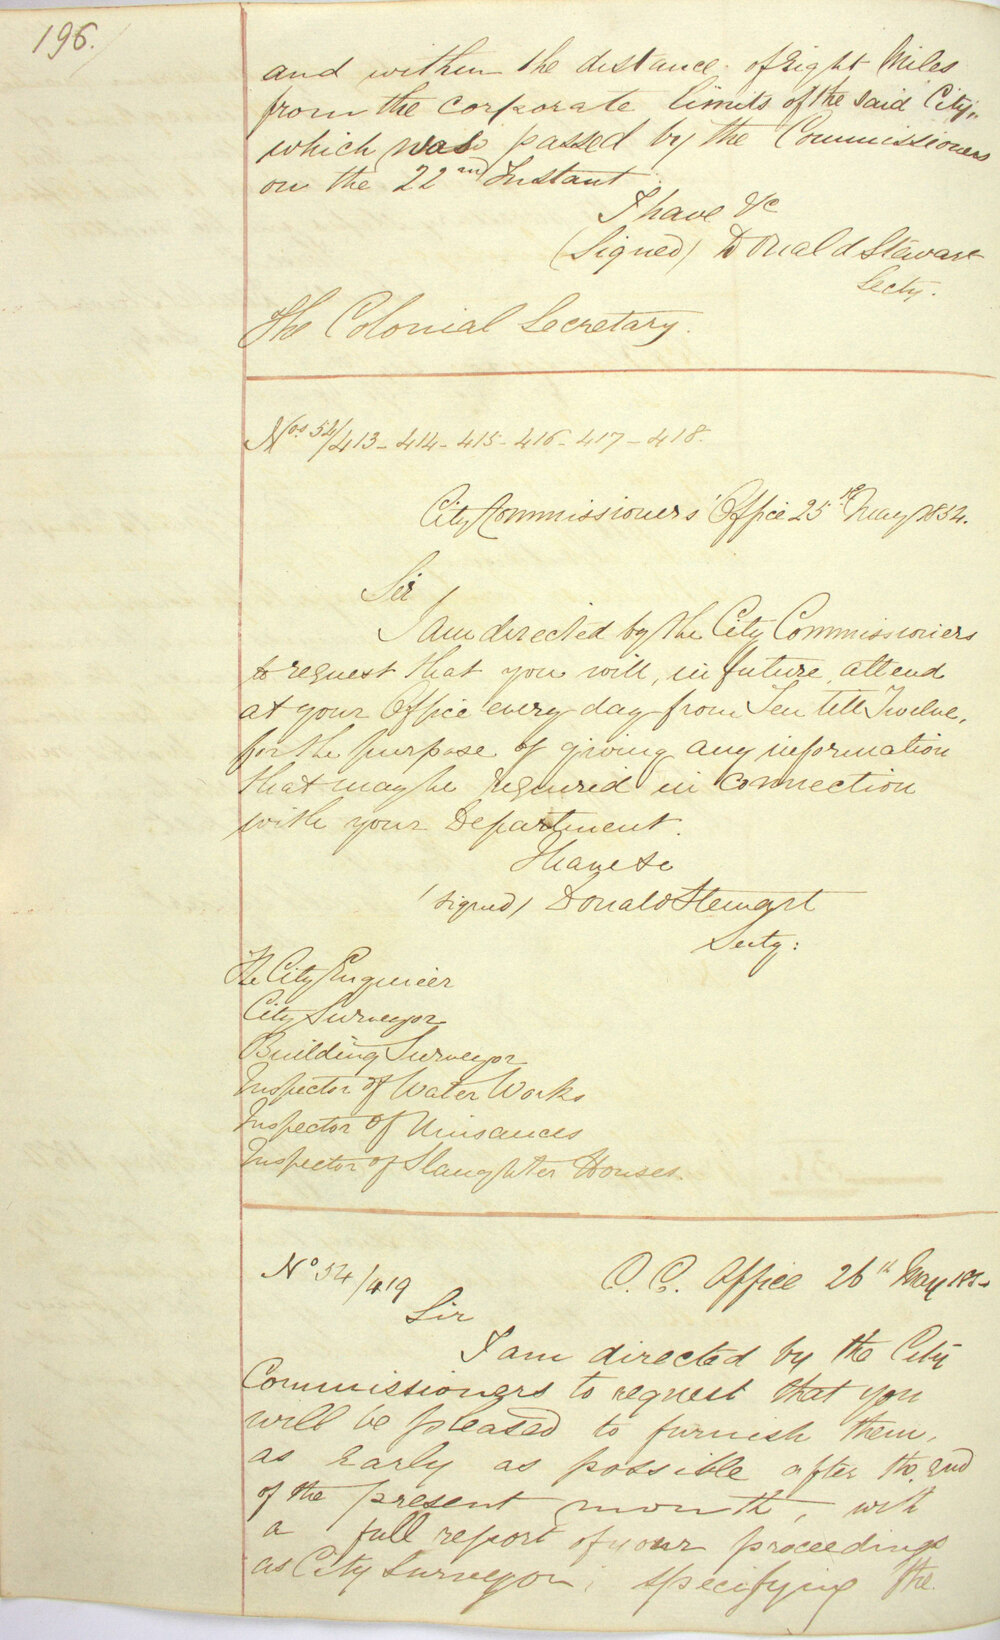 196.
and within the distance of Eight Miles
from the corporate limits of the said City,
which was passed by the Commissioners
on the 22nd Instant
I have &c
(Signed) Donald Stewart
Secty.
The Colonial Secretary.
Nos 54/413 - 414 - 415 - 416 - 417 - 418.
City Commissioners' Office 25th May 1854.
Sir
I am directed by the City Commissioners
to request that you will, in future, attend
at your Office every day from Ten till Twelve,
for the purpose of giving any information
that may be required in connection
with your Department.
I have &c
(signed) Donald Stewart
Secty:
The City Engineer
City Surveyor
Building Surveyor
Inspector of Water Works
Inspector of Nuisances
Inspector of Slaughter Houses.
No 54/419
C. C. Office 26th May
Sir
I am directed by the City
Commissioners to request that you
will be pleased to furnish them,
as early as possible after the end
of the present month, with
a full report of your proceedings
as City Surveyor; specifying the